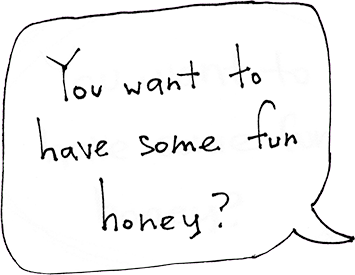 You want to
have some fun
honey?